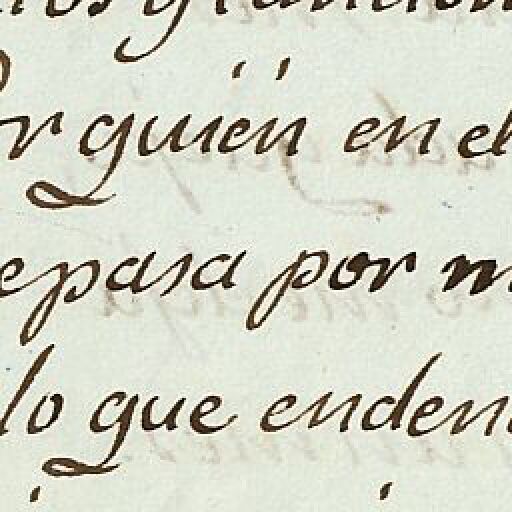 or quién en el
epasa por m
lo que enden